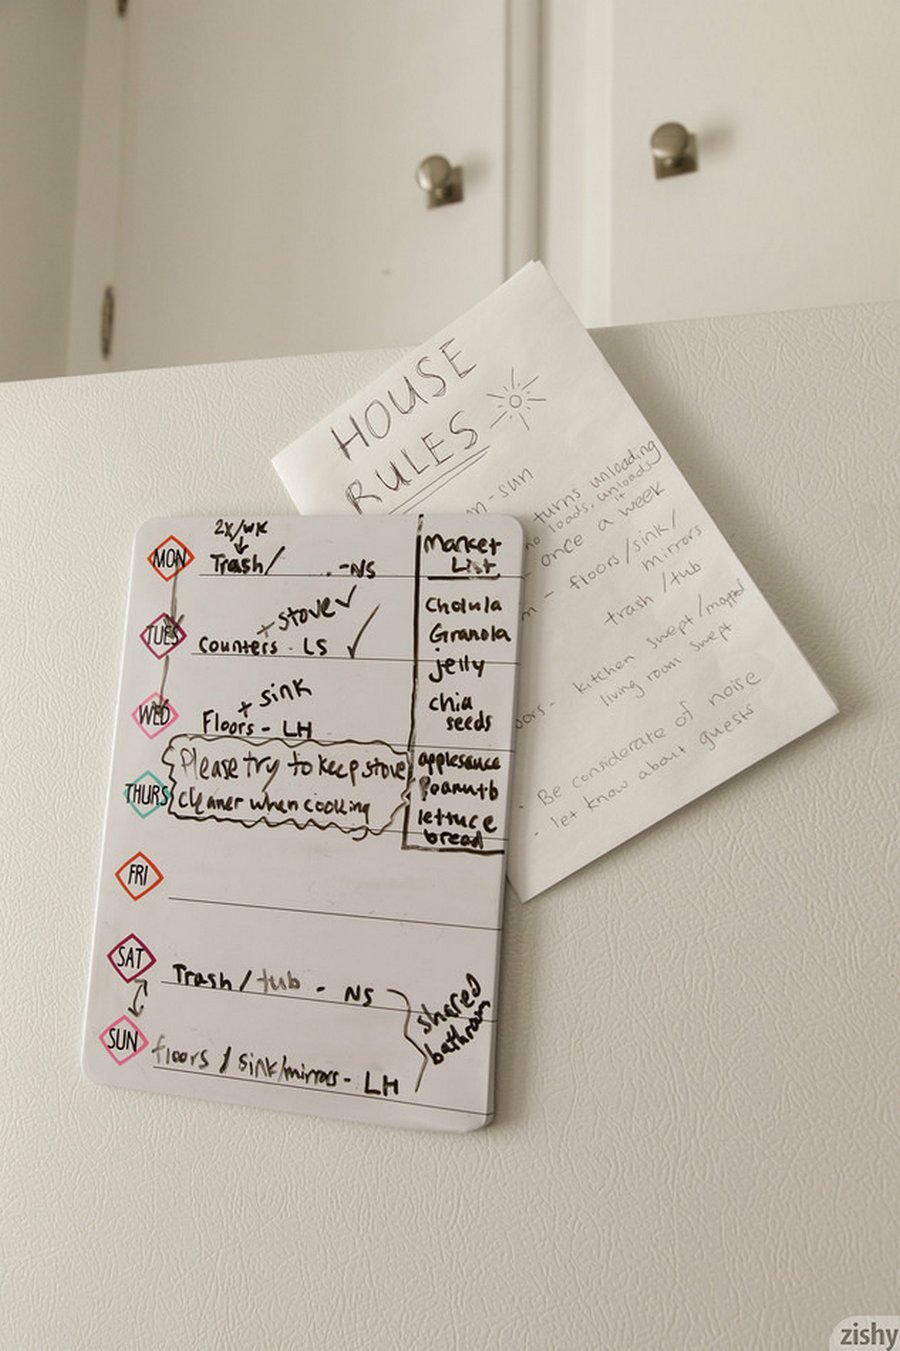 HOUSE
RULES
n-sun
turns unloading
no loads, unloads
it
once a week
m - floors/sink/
mirrors
trash/tub
oors - kitchen swept/mopped
living room swept
- Be considerate of noise
- let know about guests
2x/wk
MON
Trash/ -NS
+ stove ✓
TUES
Counters - LS ✓
+ sink
WED
Floors - LH
THURS
Please try to keep stove
cleaner when cooking
FRI
SAT
Trash / tub - NS
SUN
floors / sink/mirrors - LH
shared
bathroom
Market
List
Cholula
Granola
jelly
chia
seeds
applesauce
Peanutb
lettuce
bread
zishy